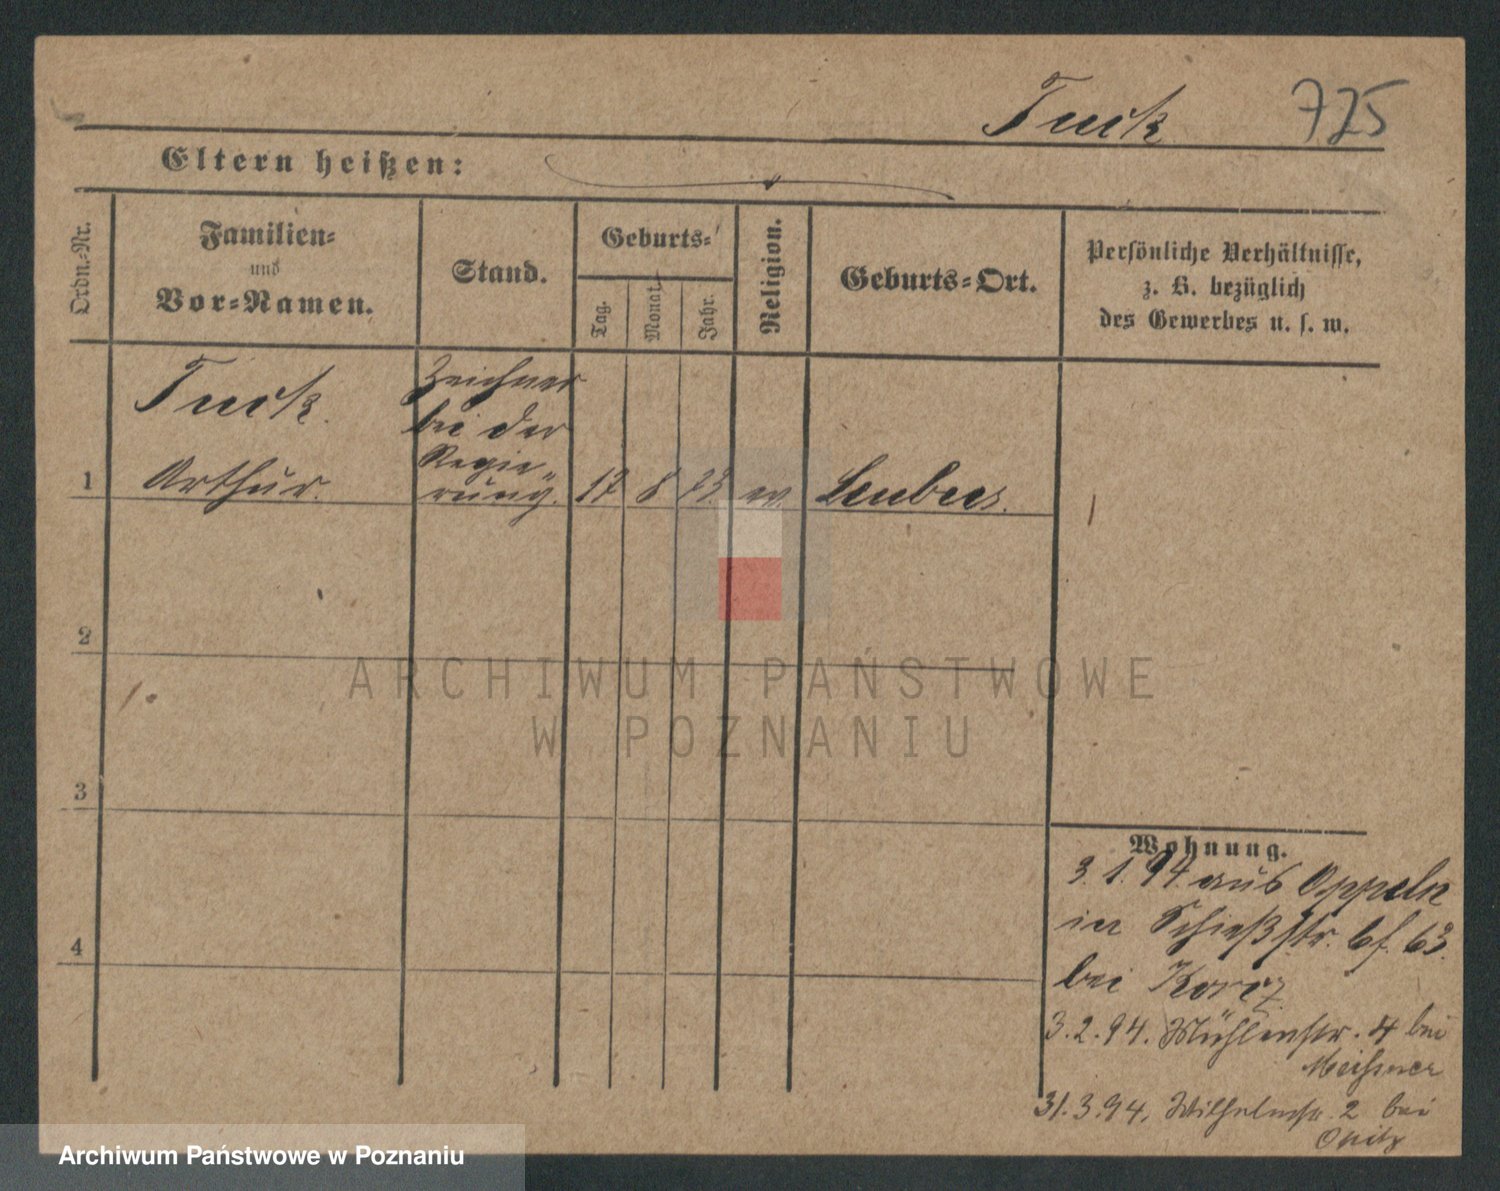 Tuck 725
Eltern heißen:
Ordn.-Nr.
Familien-
und
Vor-Namen.
Stand.
Geburts-
Tag.
Monat.
Jahr.
Religion.
Geburts-Ort.
Persönliche Verhältnisse,
z. B. bezüglich
des Gewerbes u. s. w.
Tuck
Arthur.
Zeichner
bei der
Regie-
rung.
1
17 8 73
Leubus.
2
ARCHIWUM PAŃSTWOWE
W POZNANIU
3
4
Wohnung.
3.1.94. aus Oppeln
in Schießstr. 63.
bei
3.2.94. Mühlenstr. 4 bei
Meißner
31.3.94. Wilhelmstr. 2 bei
Opitz
Archiwum Państwowe w Poznaniu